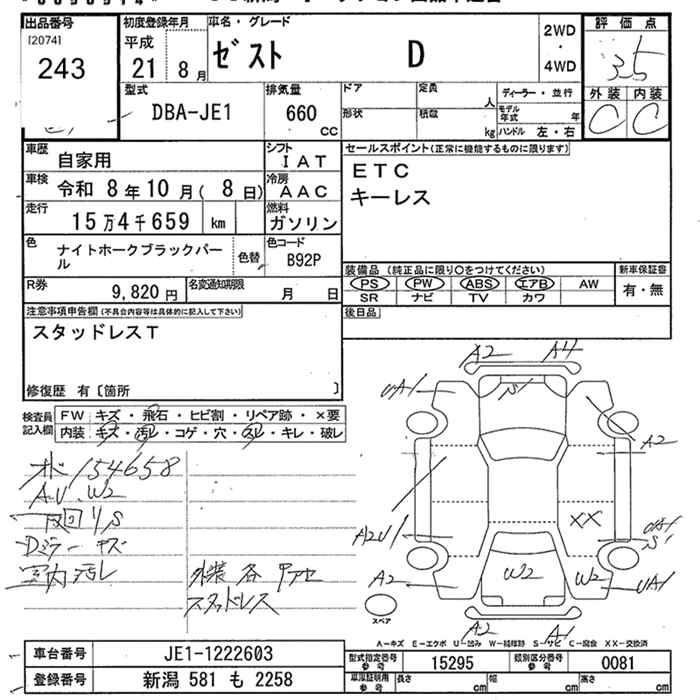 出品番号
[2074]
243
初度登録年月
平成
21 8月
車名・グレード
ゼスト D
2WD
・
4WD
評価点
3.5
外装 内装
C C
型式
DBA-JE1
排気量
660 cc
ドア
定員
人
形状
積載
kg
ディーラー・並行
モデル年式 年
ハンドル 左・右
車歴
自家用
シフト
IAT
車検
令和 8年10月(8日)
冷房
AAC
走行
15万4千659 km
燃料
ガソリン
色
ナイトホークブラックパール
色替
色コード
B92P
R券
9,820 円
名変通知期限
月 日
セールスポイント(正常に機能するものに限ります)
ETC
キーレス
装備品 (純正品に限り○をつけてください)
PS PW ABS エアB AW
SR ナビ TV カワ
新車保証書
有・無
後日品
注意事項申告欄(不具合内容等は具体的に記入して下さい)
スタッドレスT
修復歴 有〔箇所 〕
検査員記入欄
FW キズ・飛石・ヒビ割・リペア跡・×要
内装 キズ・汚レ・コゲ・穴・スレ・キレ・破レ
154658
A.U.W2
Dミラー キズ
室内汚レ
外装 各
スタッドレス
A2 A4
UA1
A2
A2U1
XX
S1
A2
W2
W2
UA1
A2 A1
スペア
A−キズ E−エクボ U−凹み W−補修跡 S−サビ C−腐食 XX−交換済
車台番号 JE1-1222603
登録番号 新潟 581 も 2258
型式指定番号参考 15295
類別区分番号参考 0081
車庫証明用参考
長さ cm
幅 cm
高さ cm